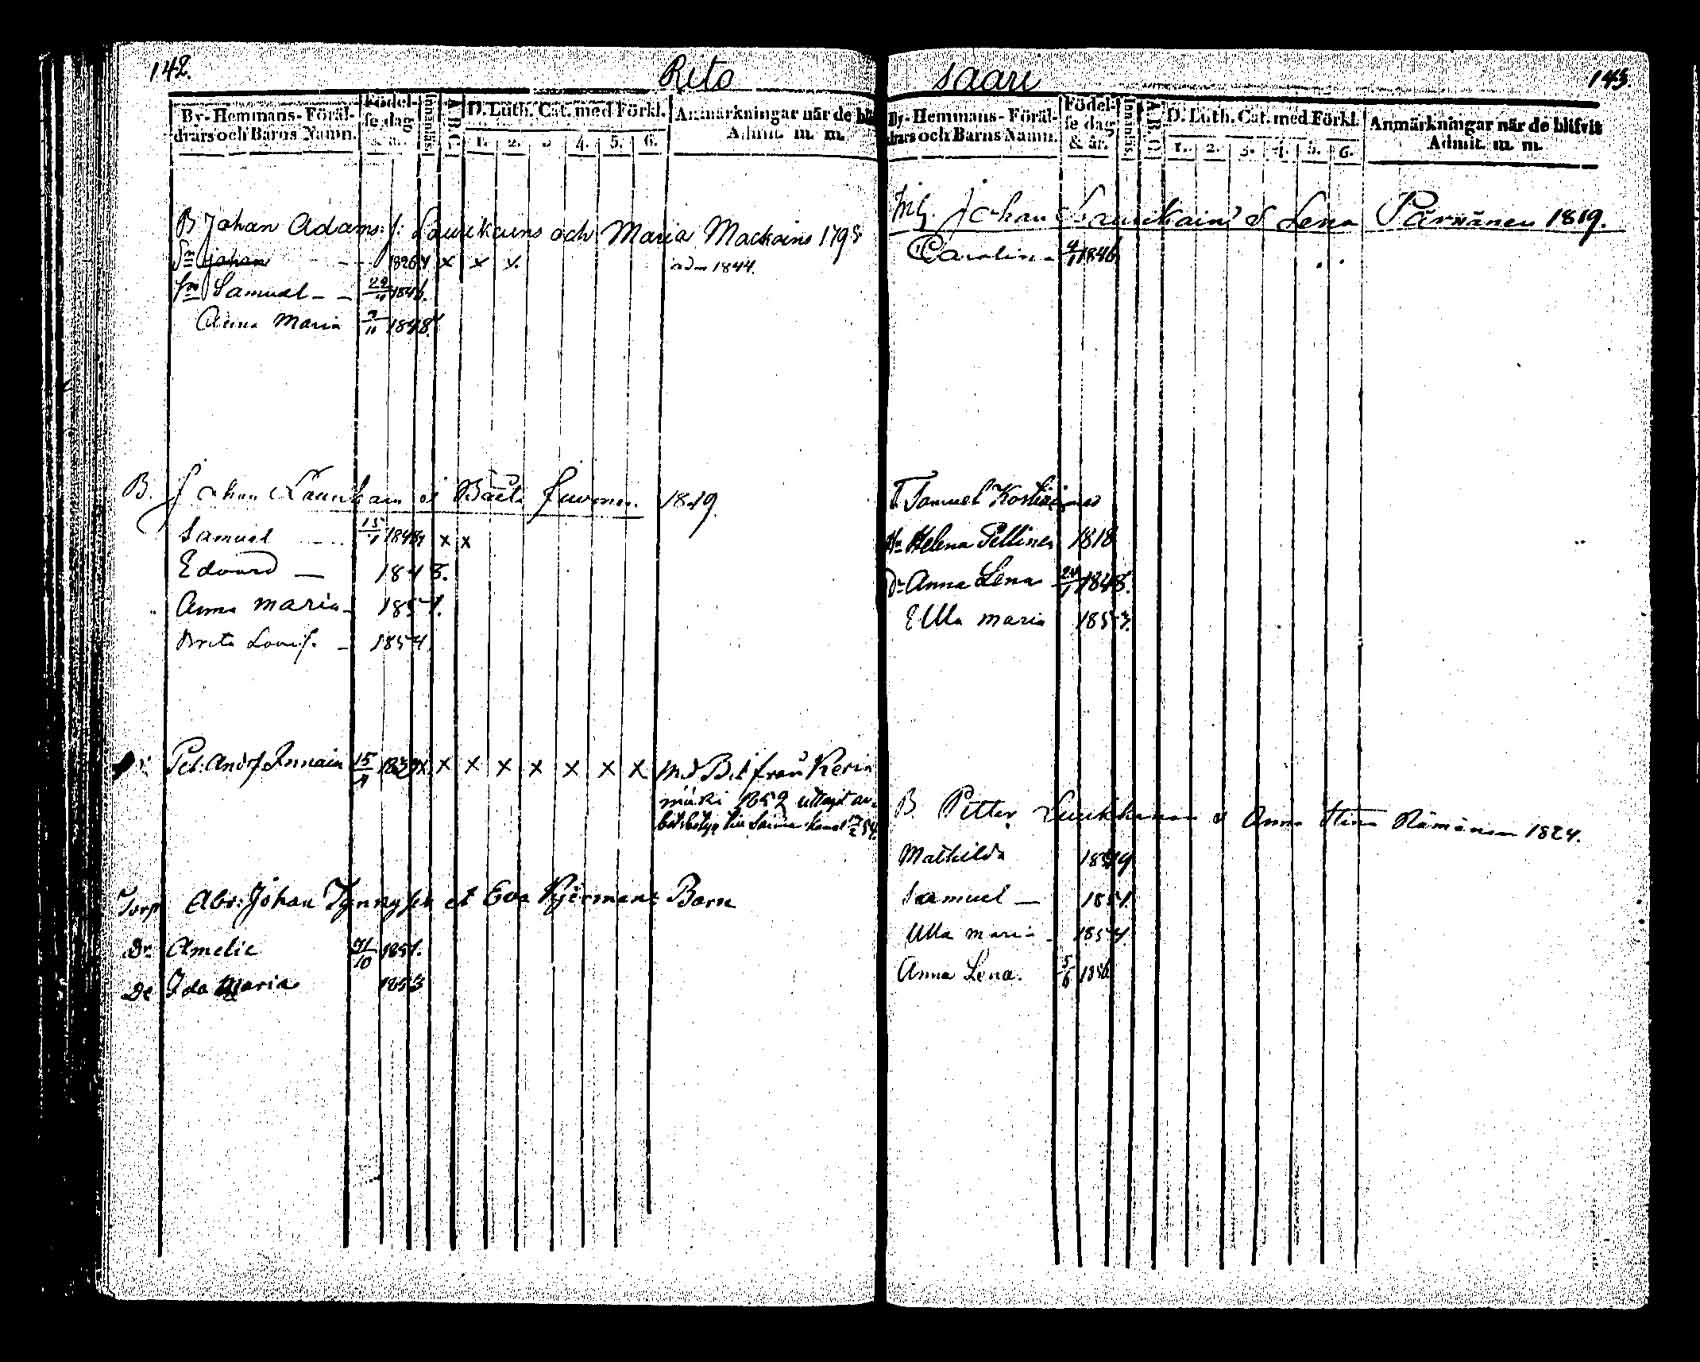 142.
Rito
By-Hemmans-Föräl-
drars och Barns Namn.
Födel-
se dag
& år.
Innanläs.
A B C
D. Luth. Cat. med Förkl.
1. 2. 3 4. 5. 6.
Anmärkningar när de bli
Admit. m. m.
B Johan Adams: f: Laurikains och Maria Mackoins 1798
Sn Johan 1826 x x x ad 1844.
Samuel 1846.
Anna Maria 1848
B. Johan och Juvonen. 1819.
Samuel 15/1 x x
Edvard 1848.
Anna Maria 1851.
Brita Lovis. 1854
Pet: And: Innain 15/9 x x x x x x x x Md Bet. från Keri
mäki 1852
Saima Kanal
Torp Abr: Johan et Eva Barn
Dr Amelie 1851.
Dr Ida Maria 1853
saari
143.
By-Hemmans-Föräl-
drars och Barns Namn.
Födel-
se dag
& år.
Innanläs.
A B C
D. Luth. Cat. med Förkl.
1. 2. 3. 4. 5. 6.
Anmärkningar när de blifvit
Admit. m. m.
Johan Laurikain & Lena Pärnänen 1819.
Carolin 4/1 1846
T. Samuel
Hu Helena Pellinen 1818
Dr Anna Lena 1848.
Ulla Maria 1853.
B. Petter & Anna Stina Rämänen 1824.
Mathilda 1849
Samuel 1851
Ulla Maria 1854
Anna Lena. 5/6 1856